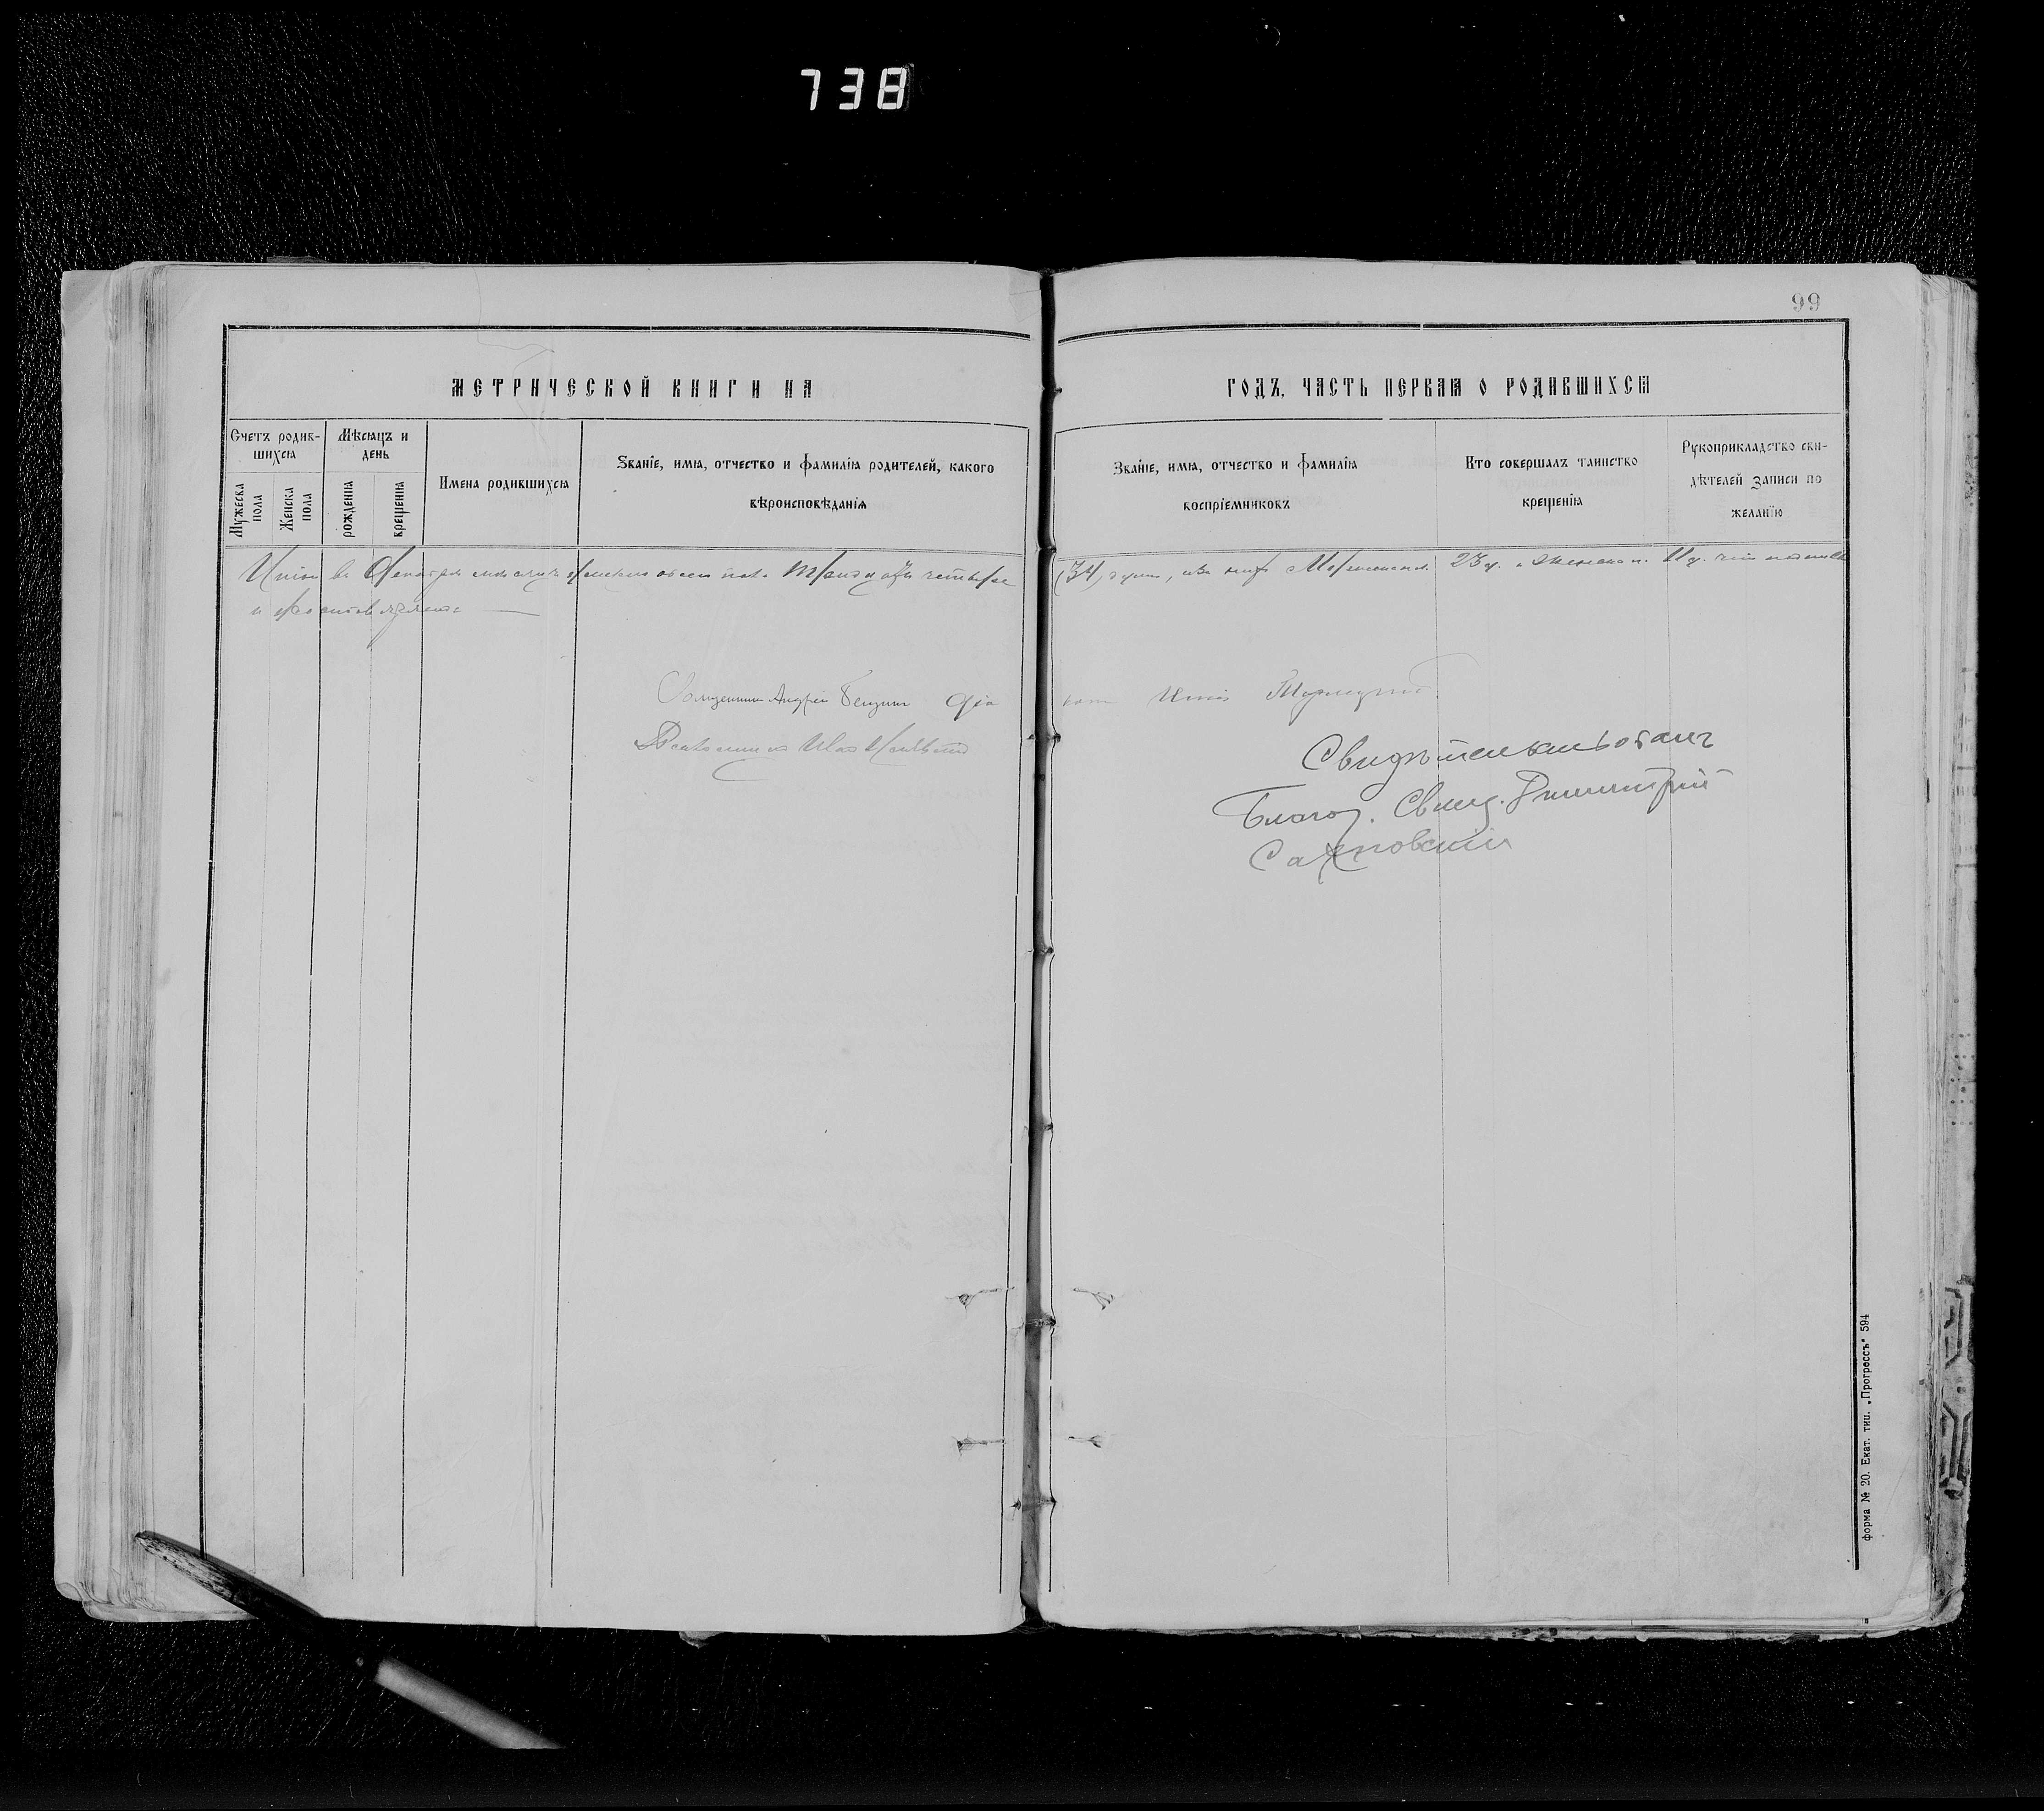 738
99
МЕТРИЧЕСКОЙ КНИГИ НА
ГОДЪ, ЧАСТЬ ПЕРВАЯ О РОДИВШИХСЯ
Счетъ родив-
шихся
Мужеска
пола
Женска
пола
Мѣсяцъ и
день
рожденія
крещенія
Имена родившихся
Званіе, имя, отчество и фамилія родителей, какого
вѣроисповѣданія
Званіе, имя, отчество и фамилія
воспріемниковъ
Кто совершалъ таинство
крещенія
Рукоприкладство сви-
дѣтелей записи по
желанію
Итого въ мѣсяцѣ обоего пола тридцать четыре (34) души, изъ нихъ Мужеска п. 23 д. и Женска п. 11 д. что
Священникъ Андрей
Свидѣтельствовалъ
Благоч. Свящ. Димитрій
Сахновскій
форма № 20. Екат. тип. „Прогрессъ“ 594